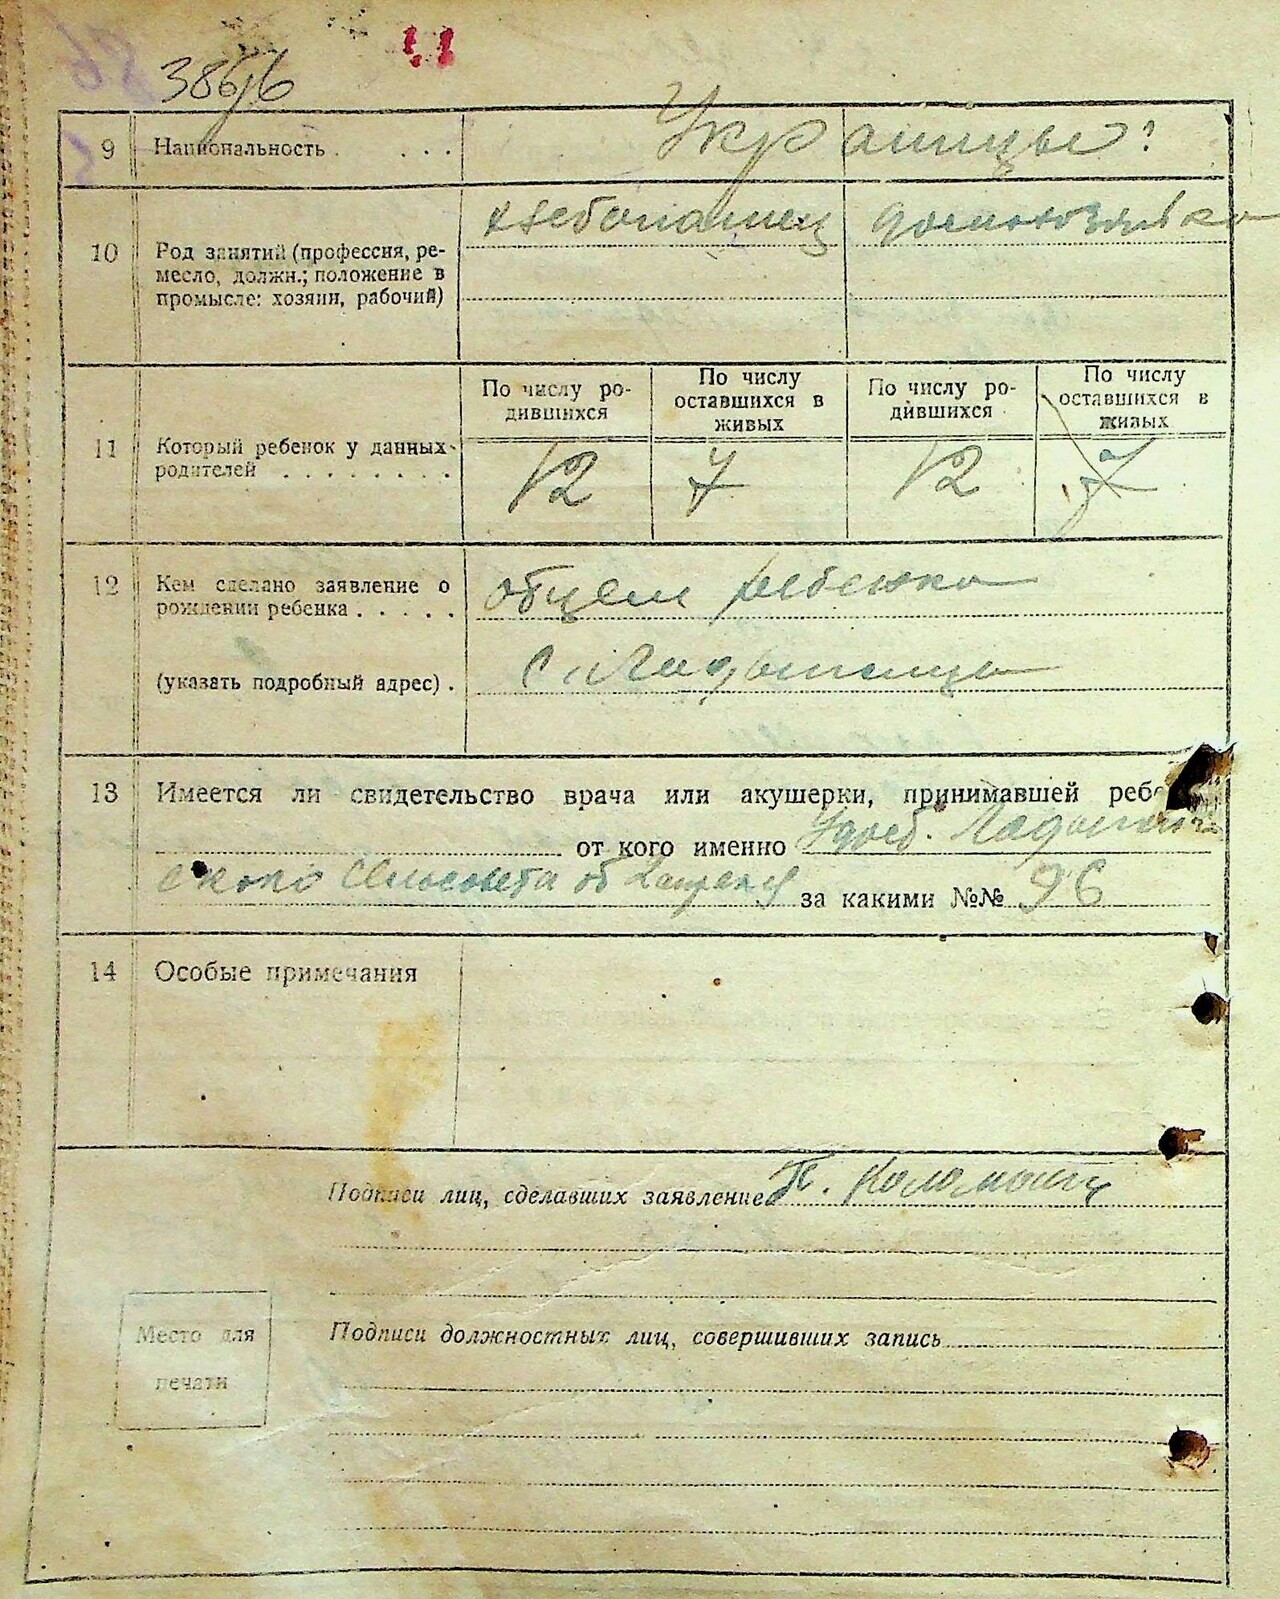 386/6
9 Национальность . . . . Украинцы
10 Род занятий (профессия, ре-
месло, должн.; положение в
промысле: хозяин, рабочий)
хлебопашец домохозяйка
11 Который ребенок у данных
родителей . . . . . . . .
По числу ро-
дившихся
По числу
оставшихся в
живых
По числу ро-
дившихся
По числу
оставшихся в
живых
12 7 12 7
12 Кем сделано заявление о
рождении ребенка . . . . .
отцем ребенка
(указать подробный адрес) .
с.
13 Имеется ли свидетельство врача или акушерки, принимавшей ребе
от кого именно Удост.
ского Сельсовета от за какими №№ 96
14 Особые примечания
Подписи лиц, сделавших заявление
Место для
печати
Подписи должностных лиц, совершивших запись